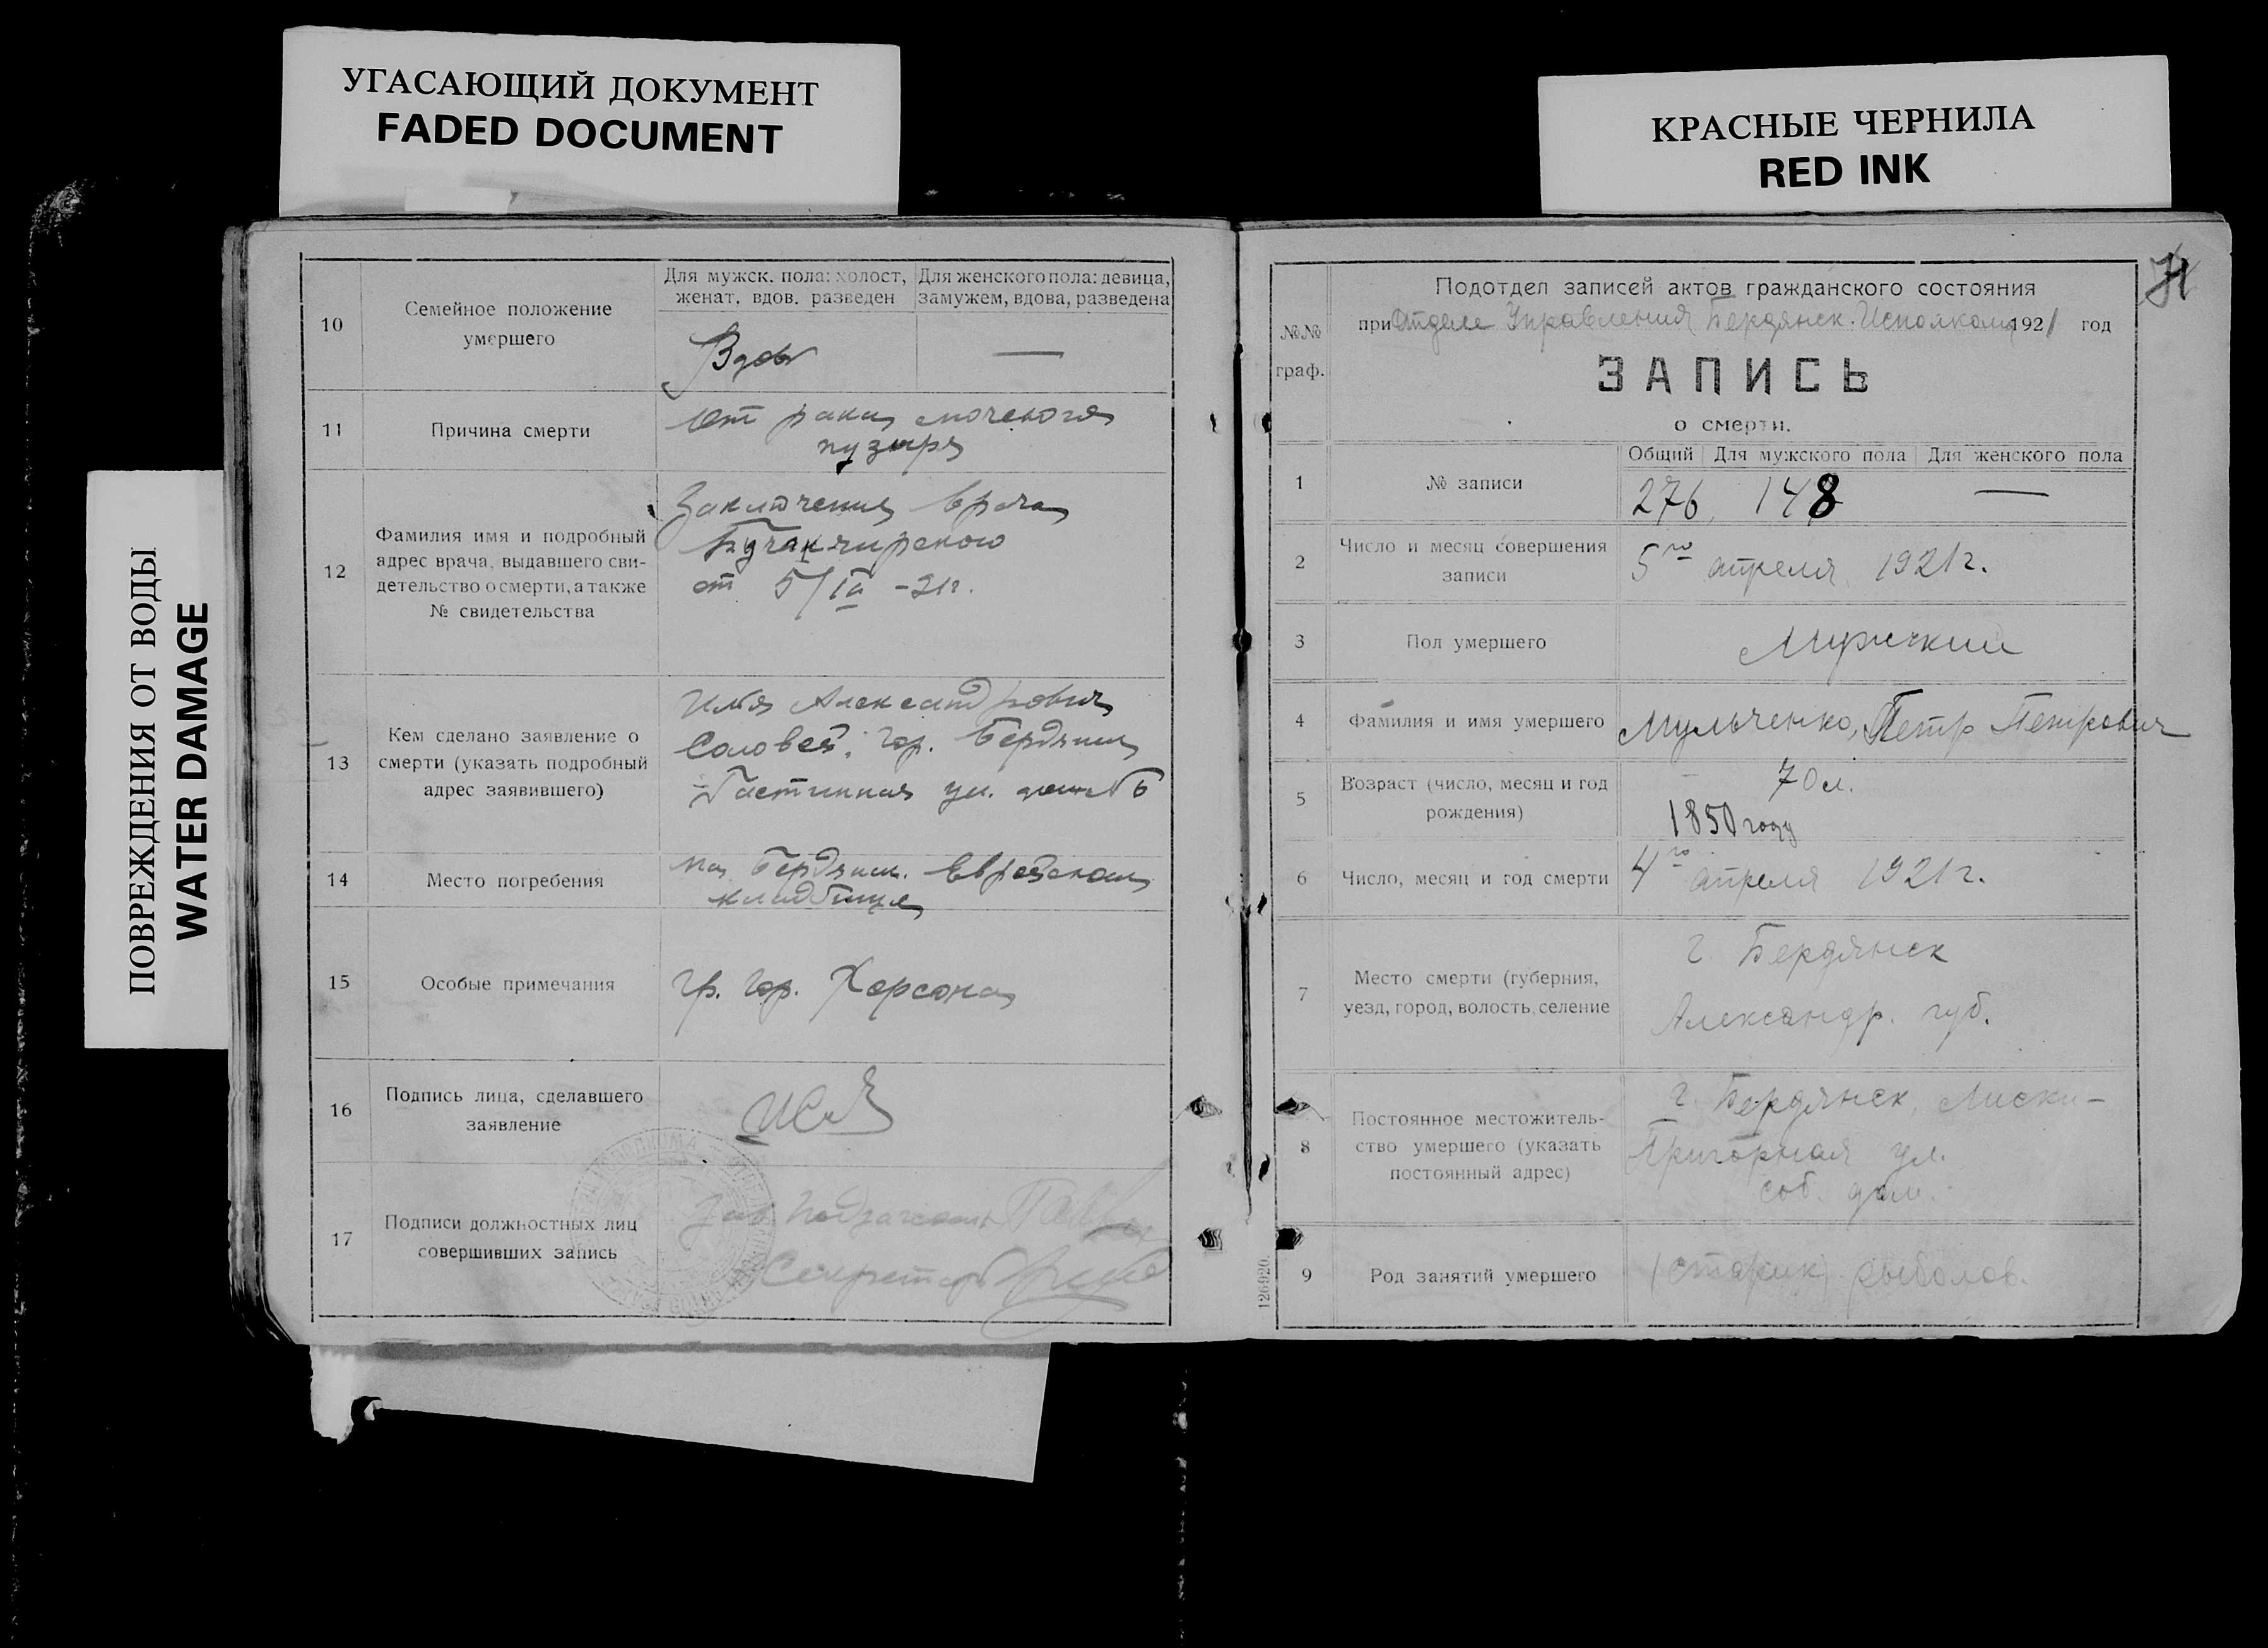 УГАСАЮЩИЙ ДОКУМЕНТ
FADED DOCUMENT
КРАСНЫЕ ЧЕРНИЛА
RED INK
ПОВРЕЖДЕНИЯ ОТ ВОДЫ
WATER DAMAGE
10
Семейное положение
умершего
Для мужск. пола: холост,
женат, вдов. разведен
Для женского пола: девица,
замужем, вдова, разведена
Вдов
—
11
Причина смерти
От рака мочевого
пузыря
12
Фамилия имя и подробный
адрес врача, выдавшего сви-
детельство о смерти, а также
№ свидетельства
Заключение врача
от 5/IV -21г.
13
Кем сделано заявление о
смерти (указать подробный
адрес заявившего)
Александрович
Соловей, гор. Бердянск
ул. дом №6
14
Место погребения
на Бердянск. Еврейском
кладбище
15
Особые примечания
гр. гор. Херсона
16
Подпись лица, сделавшего
заявление
17
Подписи должностных лиц
совершивших запись
Зав.
Секретарь
71
№№
граф.
Подотдел записей актов гражданского состояния
при Отделе Управления Бердянск. Исполкома 1921 год
ЗАПИСЬ
о смерти.
1
№ записи
Общий Для мужского пола Для женского пола
276 148 —
2
Число и месяц совершения
записи
5го апреля 1921г.
3
Пол умершего
Мужчкий
4
Фамилия и имя умершего
Мульченко, Петр Петрович
5
Возраст (число, месяц и год
рождения)
70 л.
1850 году
6
Число, месяц и год смерти
4го апреля 1921г.
7
Место смерти (губерния,
уезд, город, волость, селение
г. Бердянск
Александр. губ.
8
Постоянное местожитель-
ство умершего (указать
постоянный адрес)
г. Бердянск Лиски-
Пригорная ул.
соб. дом.
9
Род занятий умершего
(старик) рыболов.
126920.